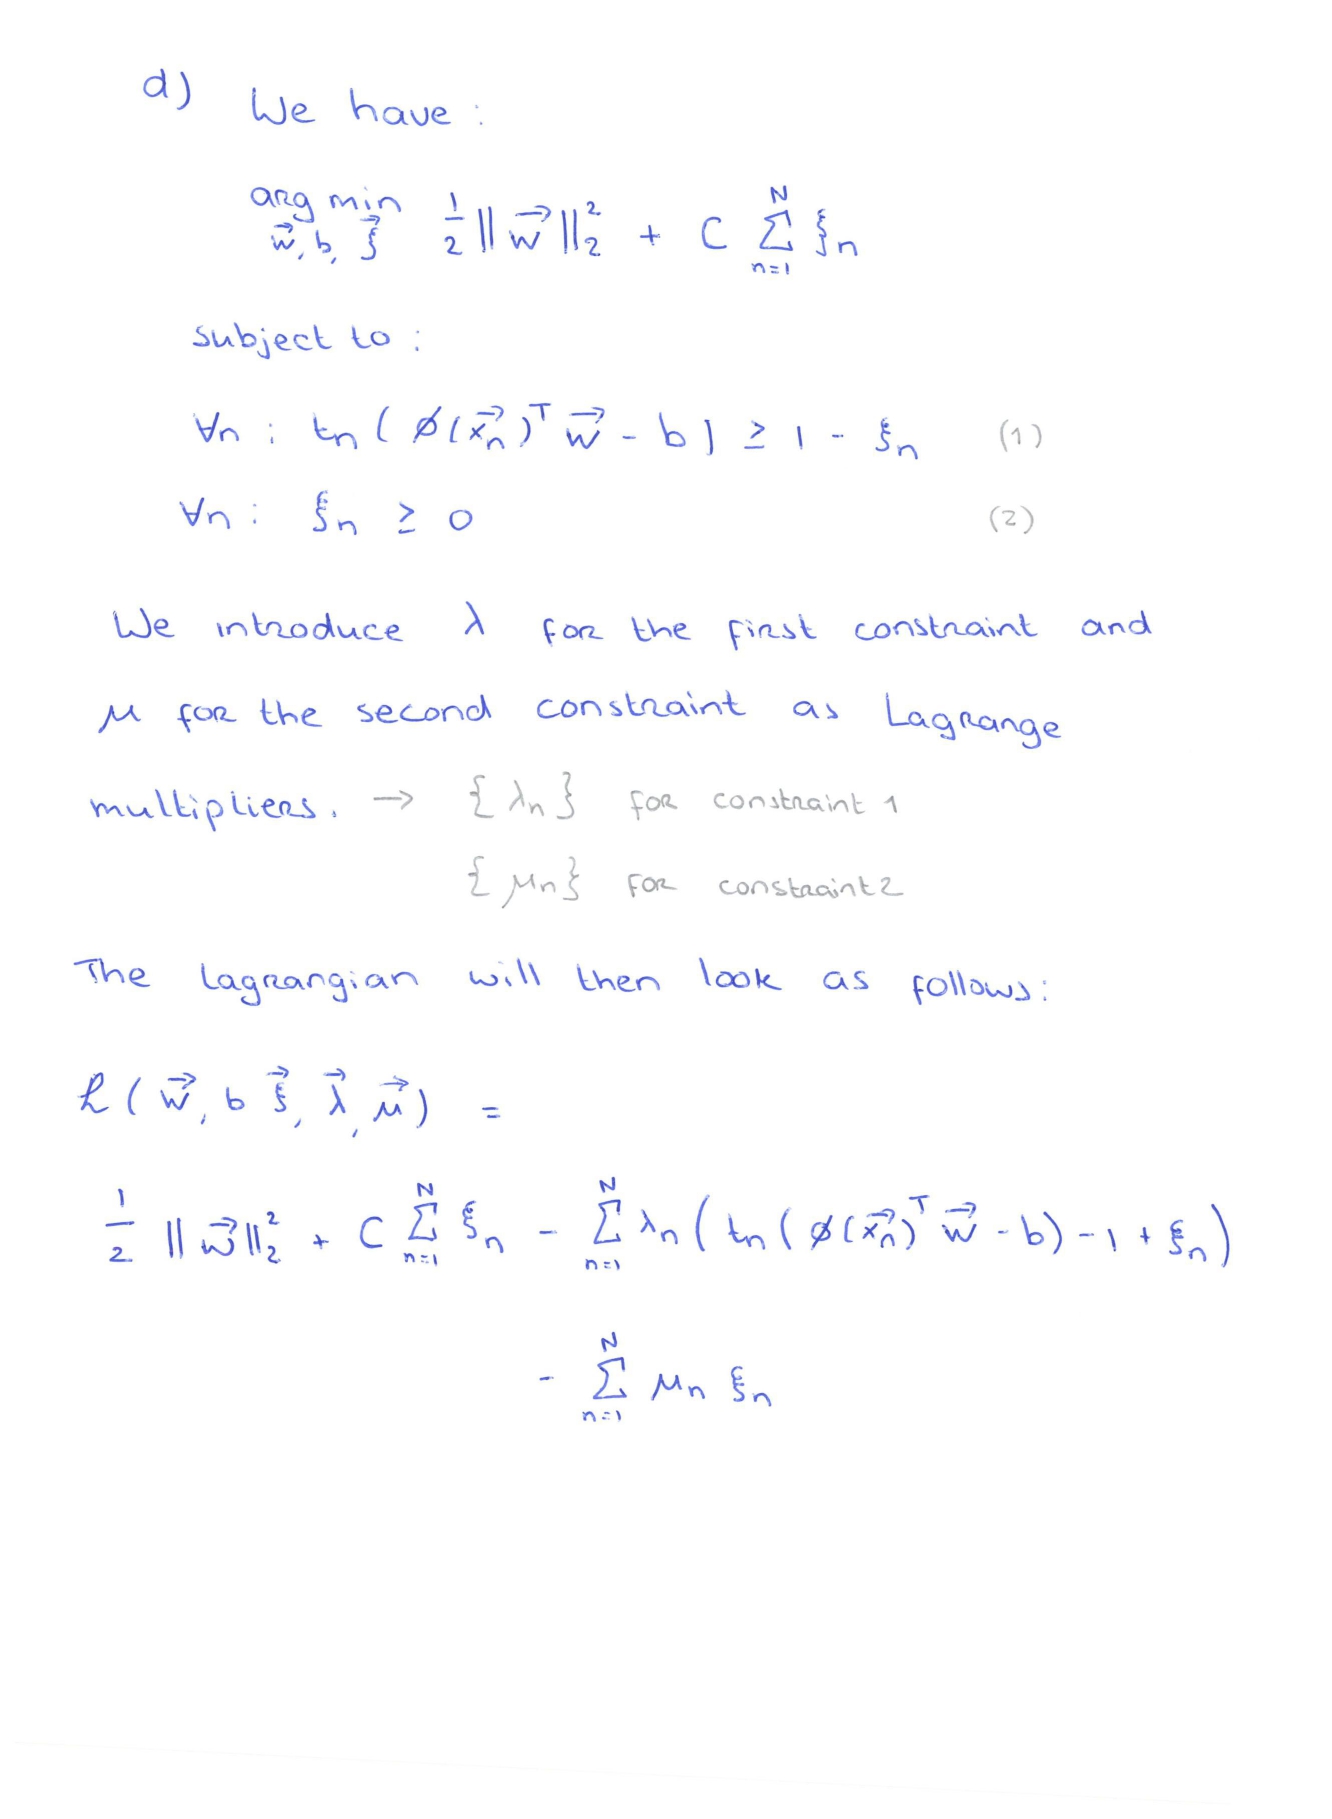 d) We have :
arg min 1/2 ||w⃗||₂² + C Σ ξn
w⃗, b, ξ⃗ n=1 N
subject to :
∀n : tn ( ϕ(x⃗n)ᵀ w⃗ - b ) ≥ 1 - ξn (1)
∀n : ξn ≥ 0 (2)
We introduce λ for the first constraint and
μ for the second constraint as Lagrange
multipliers. → {λn} for constraint 1
{μn} for constraint 2
The Lagrangian will then look as follows:
ℒ(w⃗, b ξ⃗, λ⃗, μ⃗) =
1/2 ||w⃗||₂² + C Σ_{n=1}^{N} ξn - Σ_{n=1}^{N} λn ( tn ( ϕ(x⃗n)ᵀ w⃗ - b) - 1 + ξn )
- Σ_{n=1}^{N} μn ξn